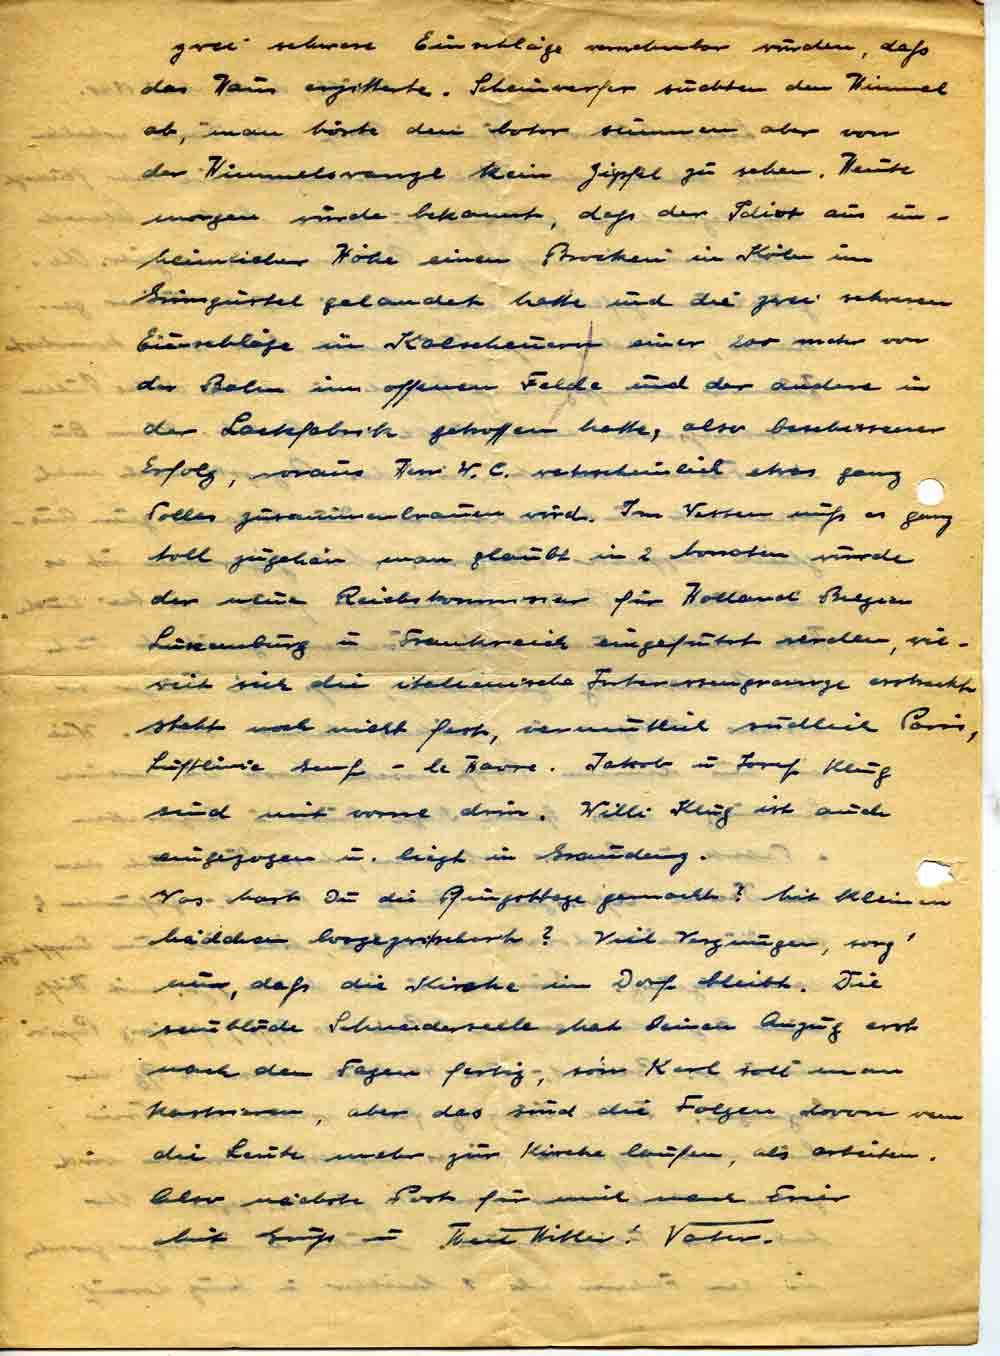 zwei schwere Einschläge vernehmbar wurden, daß
das Haus erzitterte. Scheinwerfer suchten den Himmel
ab, man hörte den Motor summen aber von
der Himmelswanze kein Zipfel zu sehen. Heute
morgen wurde bekannt, daß der Idiot aus un-
heimlicher Höhe einen Brocken in Köln im
Grüngürtel gelandet hatte und die zwei schweren
Einschläge in Kalscheuern einer 200 mtr von
der Bahn im offenen Felde und der andere in
der Lackfabrik getroffen hatte, also beschissener
Erfolg, woraus Herr W. C. wahrscheinlich etwas ganz
Tolles zusammenbrauen wird. Im Westen muß es ganz
toll zugehen man glaubt in 2 Monaten würde
der neue Reichskommissar für Holland Belgien
Luxemburg u Frankreich eingeführt werden, wie-
weit sich die italienische Interessengrenze erstreckt
steht noch nicht fest, vermutlich südlich Paris,
Luftlinie Genf - le Havre. Jakob u Josef Klug
sind mit vorne drin. Willi Klug ist auch
eingezogen u. liegt in Graudenz.
Was hast Du die Pfingsttage gemacht? Mit kleinen
Mädchen losgezwitschert? Viel Vergnügen, sorg'
nur, daß die Kirche im Dorf bleibt. Die
saublöde Schneiderseele hat Deinen Anzug erst
nach den Tagen fertig, so'n Kerl soll man
kastrieren, aber das sind die Folgen davon wenn
die Leute mehr zur Kirche laufen, als arbeiten.
Also nächste Post für mich nach Trier
Mit Gruß u Heil Hitler! Vater.